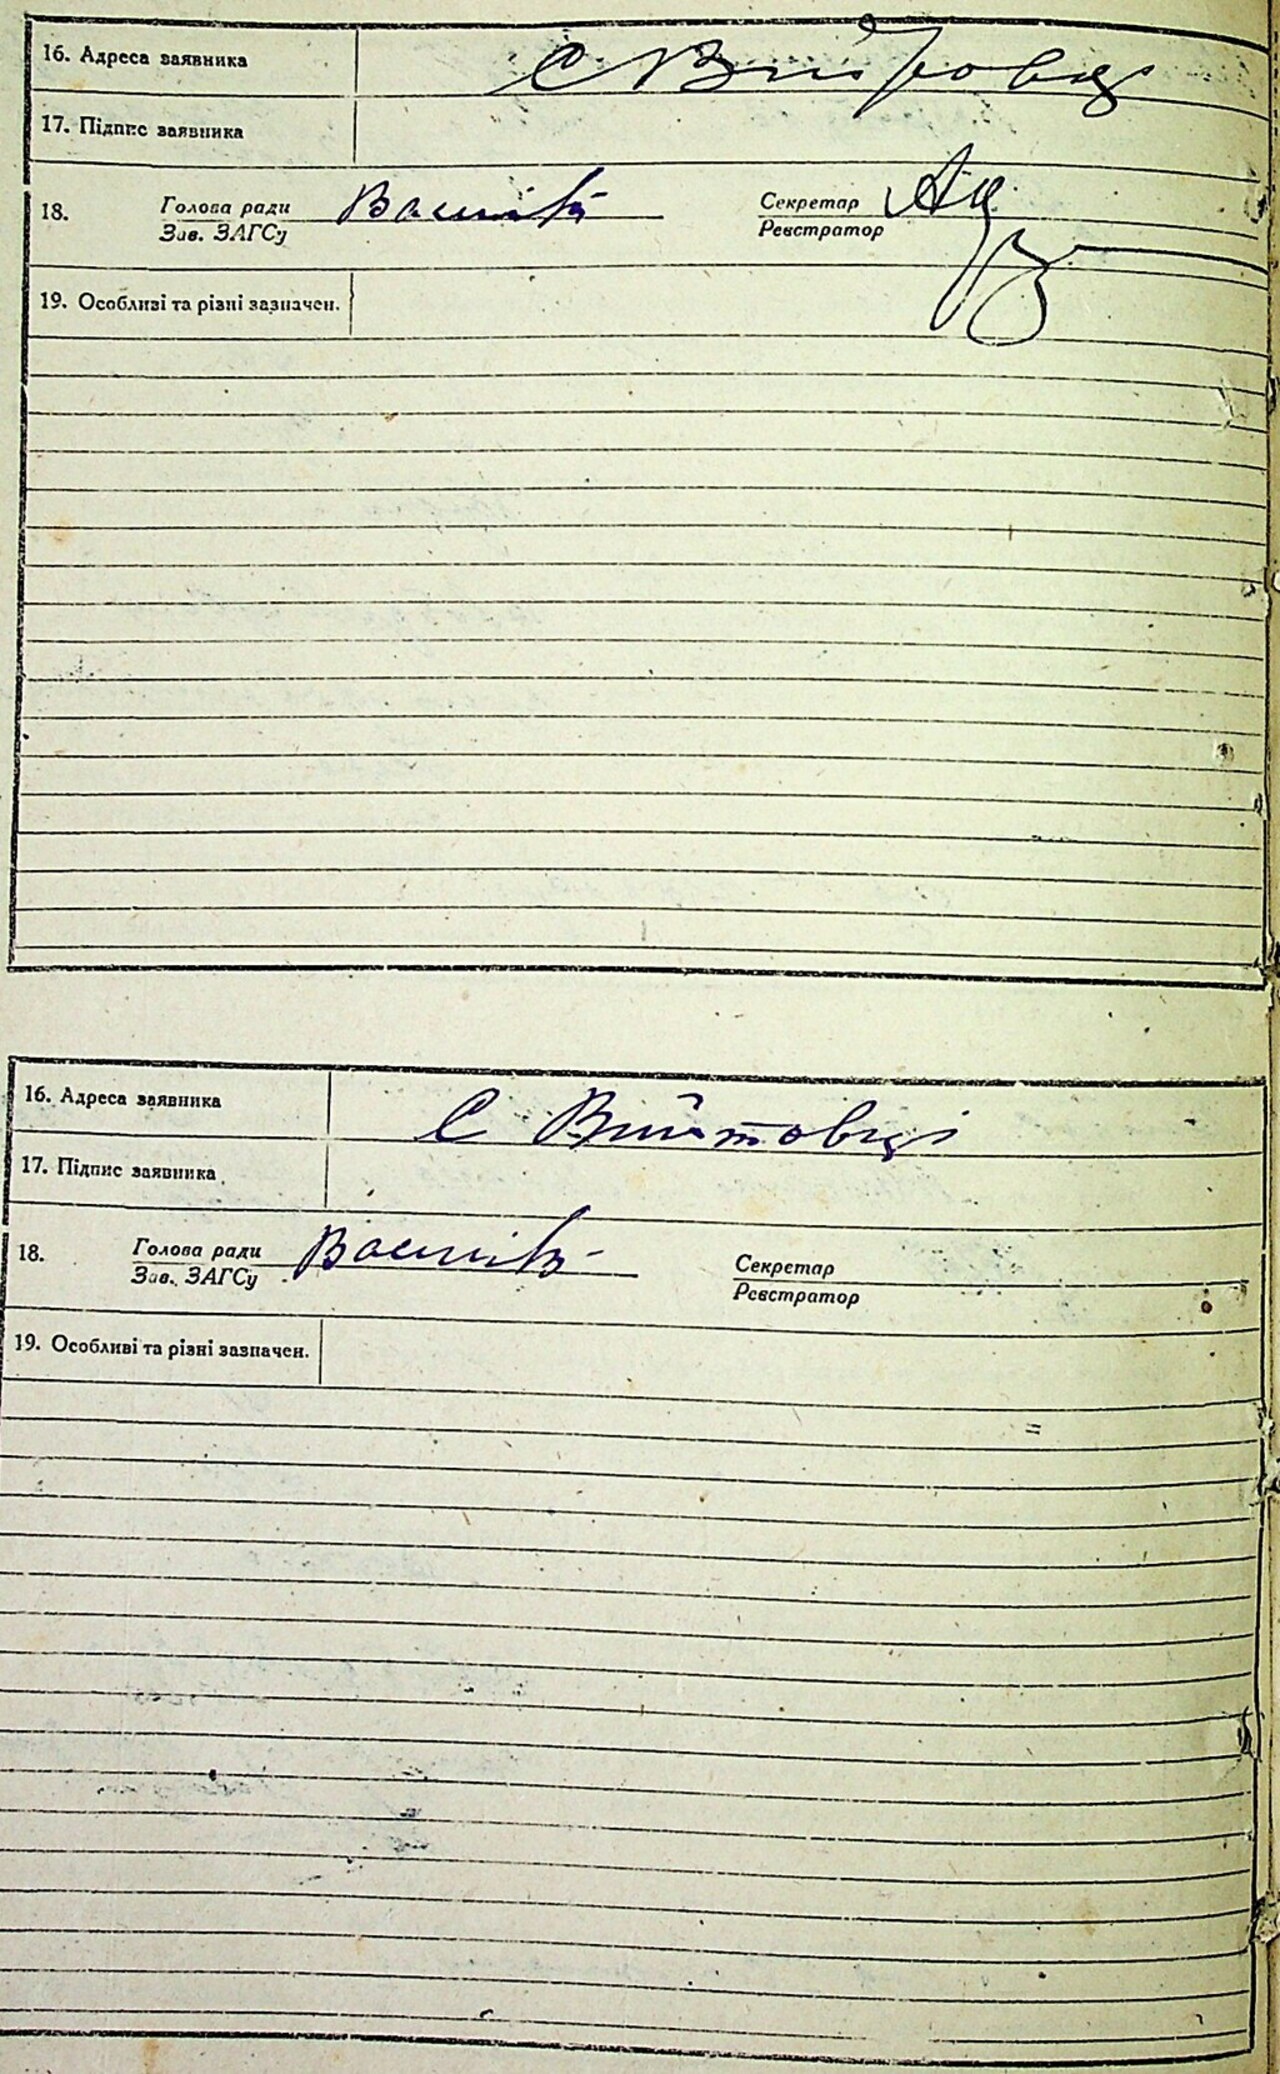 16. Адреса заявника С Війтовці
17. Підпис заявника
18. Голова ради Васильків Секретар
Зав. ЗАГСу Реєстратор
19. Особливі та різні зазначен.
16. Адреса заявника С Війтовці
17. Підпис заявника
18. Голова ради Васильків Секретар
Зав. ЗАГСу Реєстратор
19. Особливі та різні зазначен.